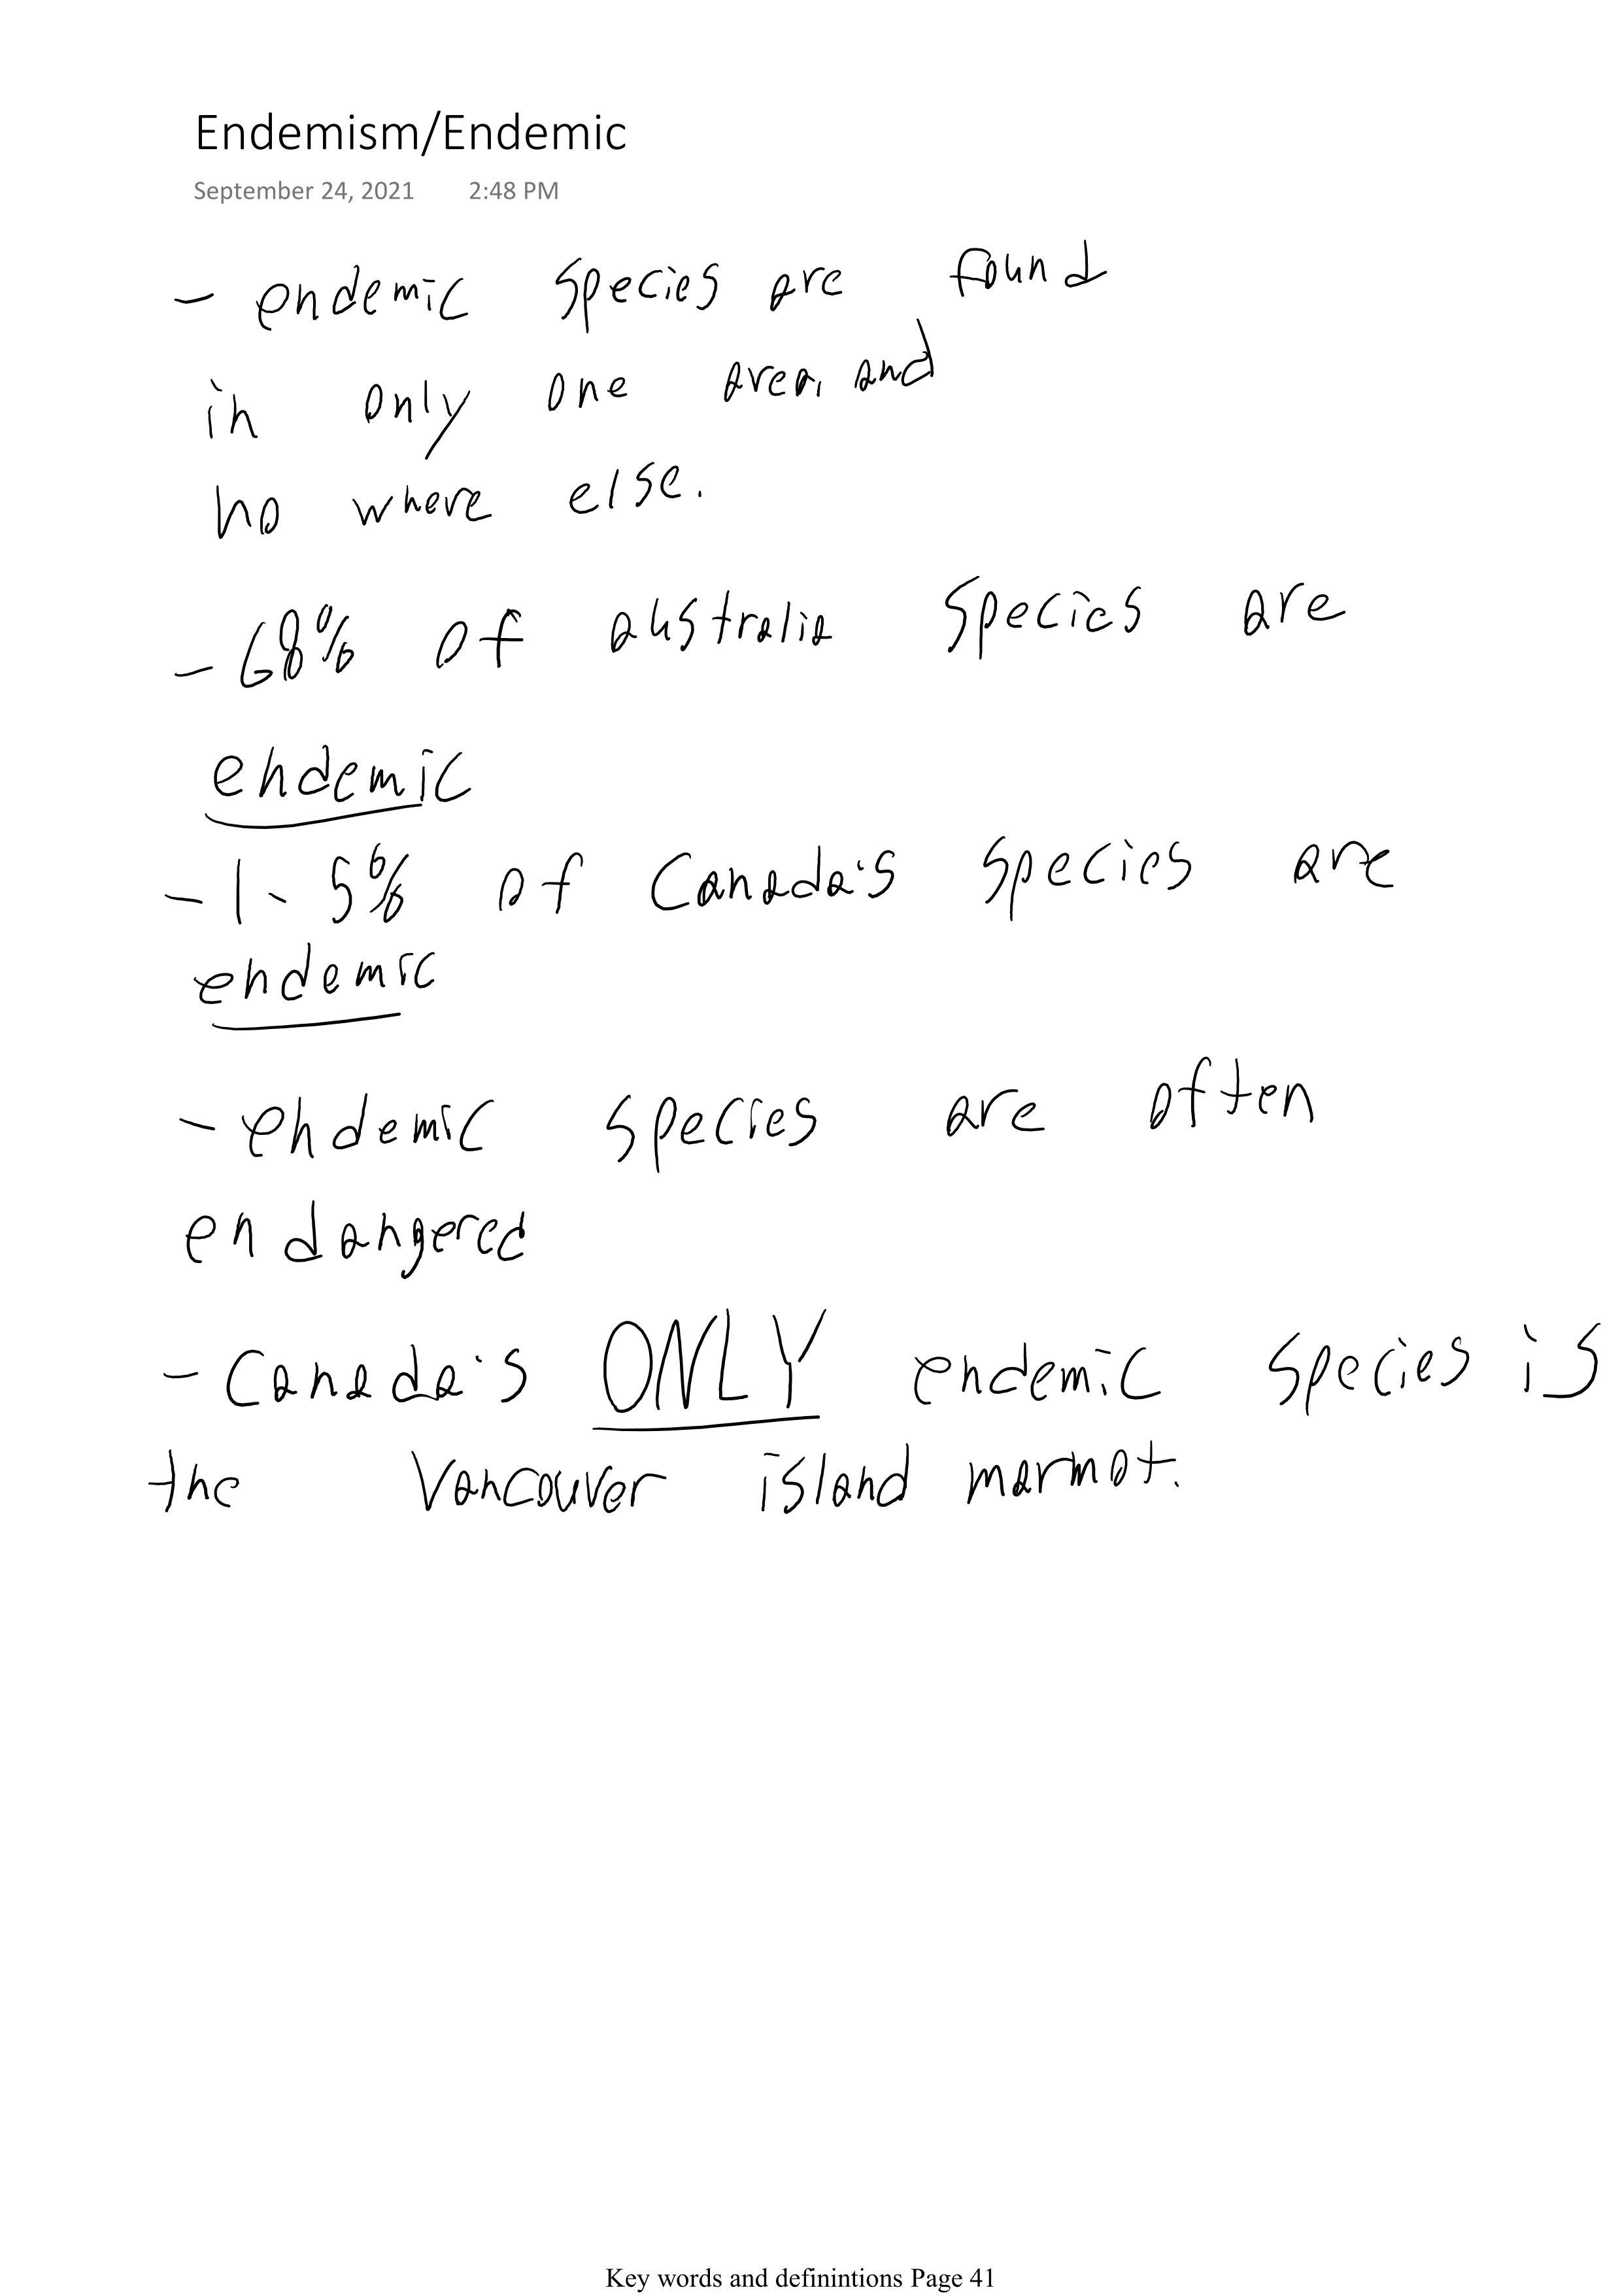 Endemism/Endemic
September 24, 2021 2:48 PM
- endemic species are found
in only one area, and
no where else.
- 68% of australia species are
endemic
- 1-5% of Canada's species are
endemic
- endemic species are often
endangered
- Canada's ONLY endemic species is
the Vancouver island marmot.
Key words and definintions Page 41